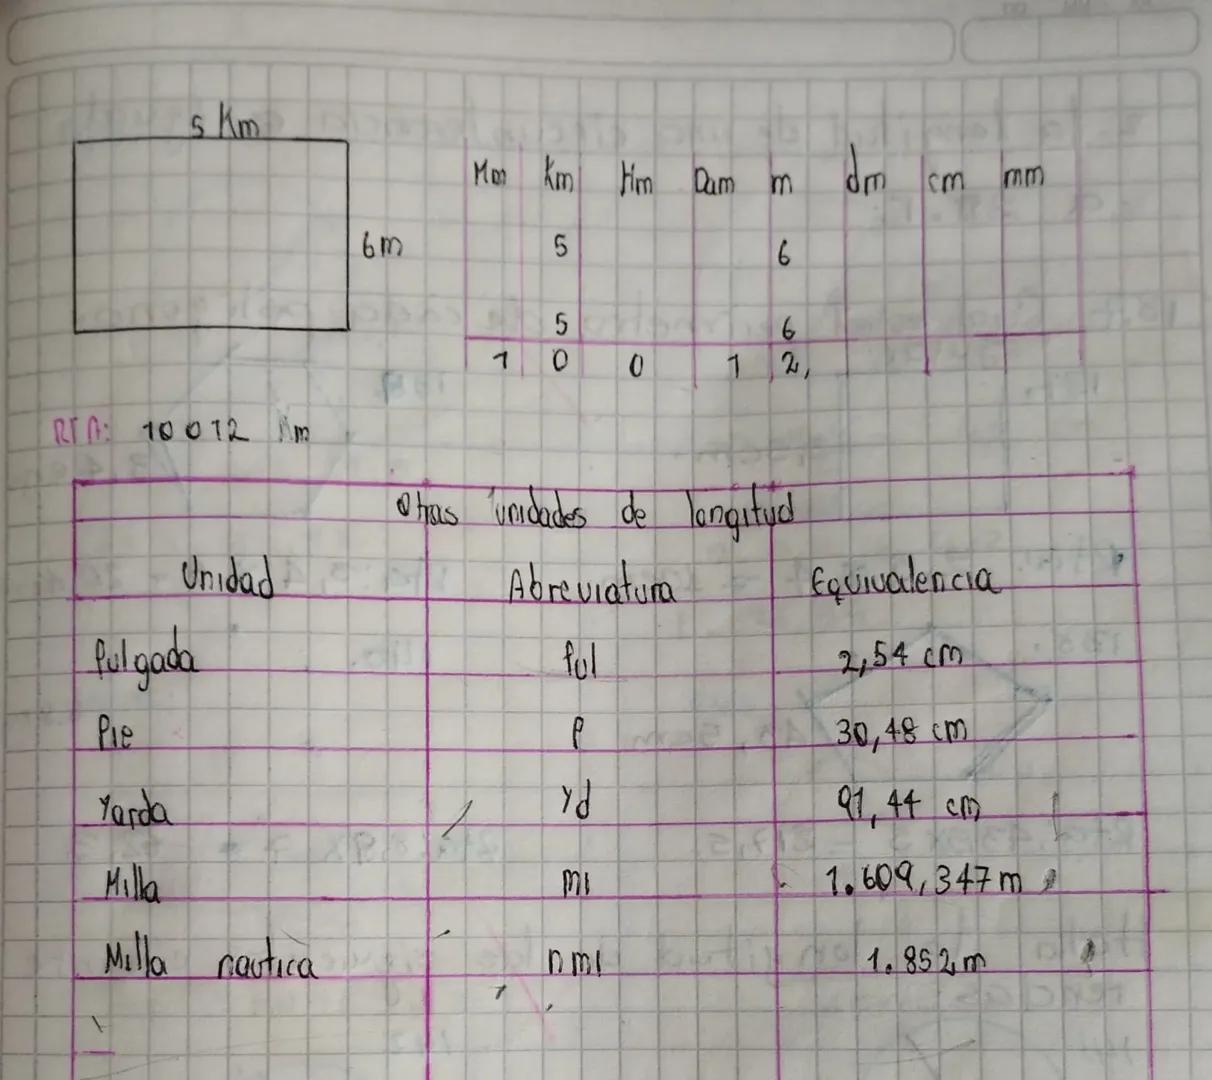 5 Km
6m
Mm Km Hm Dam m dm cm mm
5 6
5 6
1 0 0 1 2,
RTA: 10012 m
Otras unidades de longitud
Unidad Abreviatura Equivalencia
Pulgada Pul 2,54 cm
Pie P 30,48 cm
Yarda Yd 91,44 cm
Milla mi 1.609,347m
Milla nautica nmi 1.852m